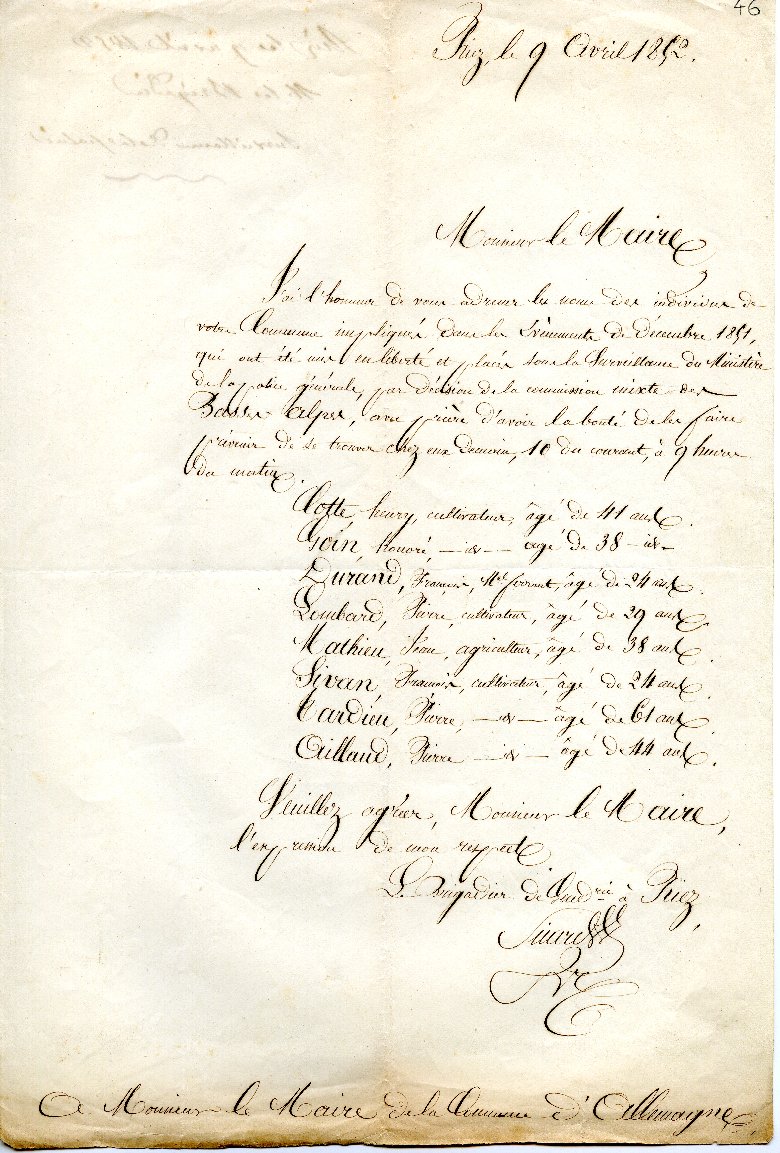 46
Riez, le 9 Avril 1852.
Monsieur le Maire
J'ai l'honneur de vous adresser les noms des individus de
votre Commune impliqués dans les Evènements de décembre 1851,
qui ont été mis en liberté et placés sous la Surveillance du Ministère
de la police générale, par décision de la commission mixte des
Basses Alpes, avec prière d'avoir la bonté de les faire
prévenir de se trouver chez eux Demain, 10 du courant, à 9 heures
du matin.
Cotte henry, cultivateur, âgé de 41 ans.
Goin, honoré — id — âgé de 38 — id —
Durand, François, Mal ferrant, âgé de 24 ans.
Lombard, Pierre, cultivateur, âgé de 29 ans.
Mathieu, Jean, agriculteur, âgé de 38 ans.
Sivan, François, cultivateur, âgé de 24 ans.
Tardieu, Pierre, — id — âgé de 61 ans.
Aillaud, Pierre — id — âgé de 44 ans.
Veuillez agréer, Monsieur le Maire,
l'expression de mon respect.
Le Brigadier de Gendrie à Riez,
A Monsieur le Maire de la Commune d'Allemagne